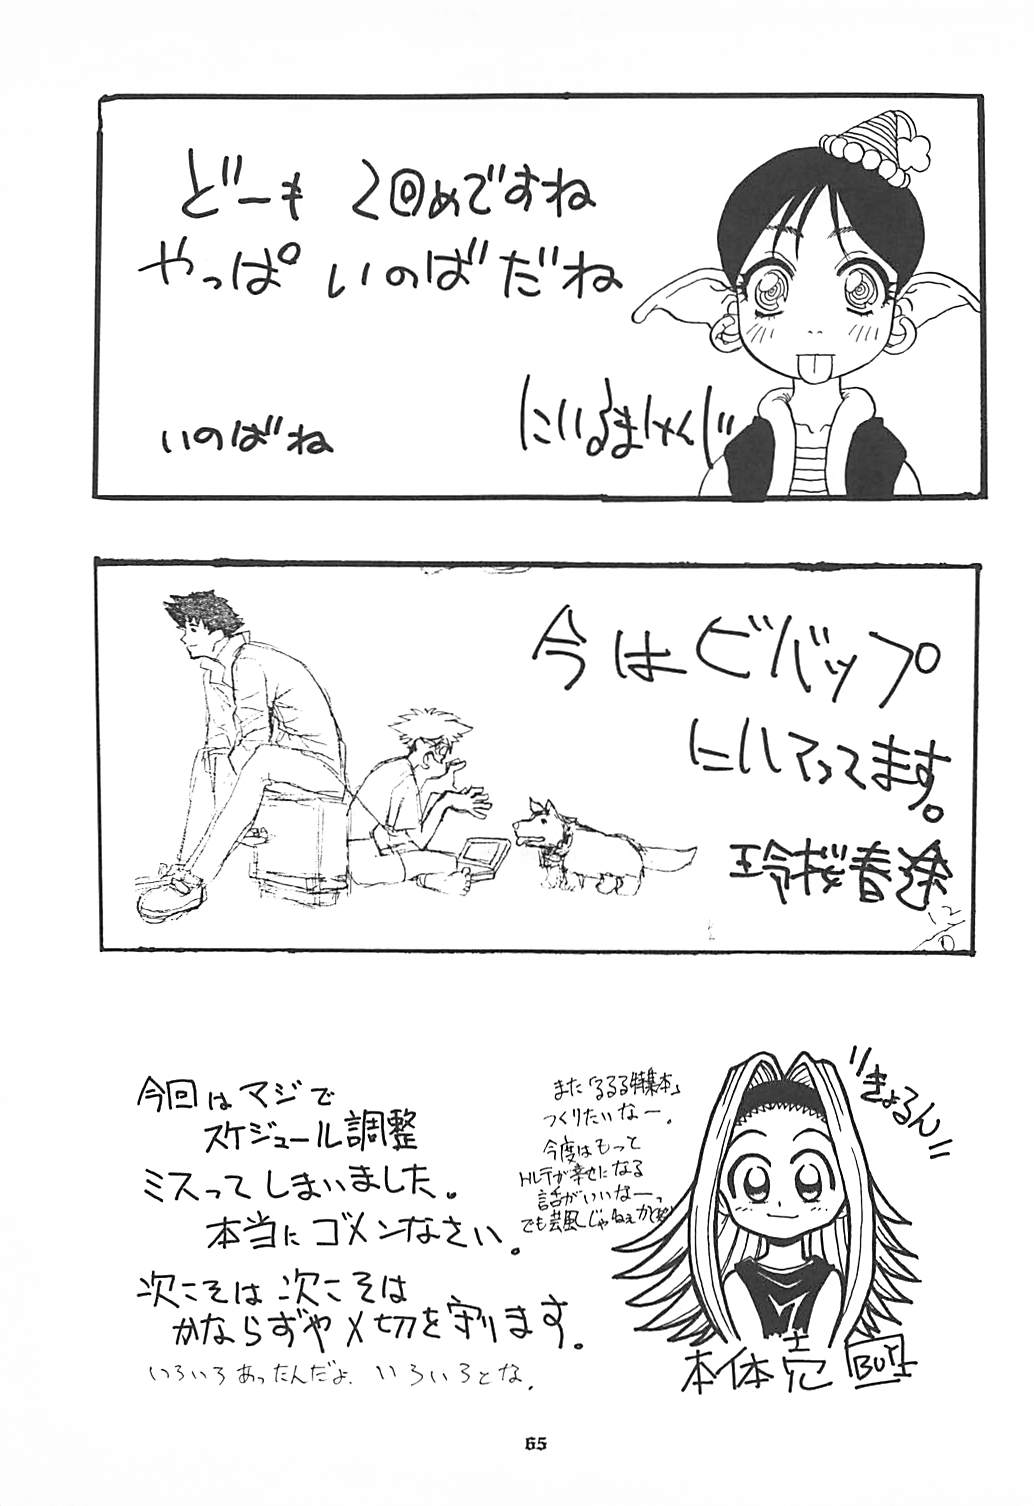 どーも 2回めですね
やっぱ いのばだね
にいるまじゃくじ
いのばね
今はビバップ
にハマってます。
玲桜春途
今回はマジで
スケジュール調整
ミスってしまいました。
本当にゴメンなさい。
次こそは次こそは
かならずや〆切を守ります。
いろいろあったんだよ、いろいろとな。
また「るるる特集本」
つくりたいなー。
今度はもっと
トルテが幸せになる
話がいいなーっ
でも芸風じゃねぇか
"きょるん"
本体売
BUY
65